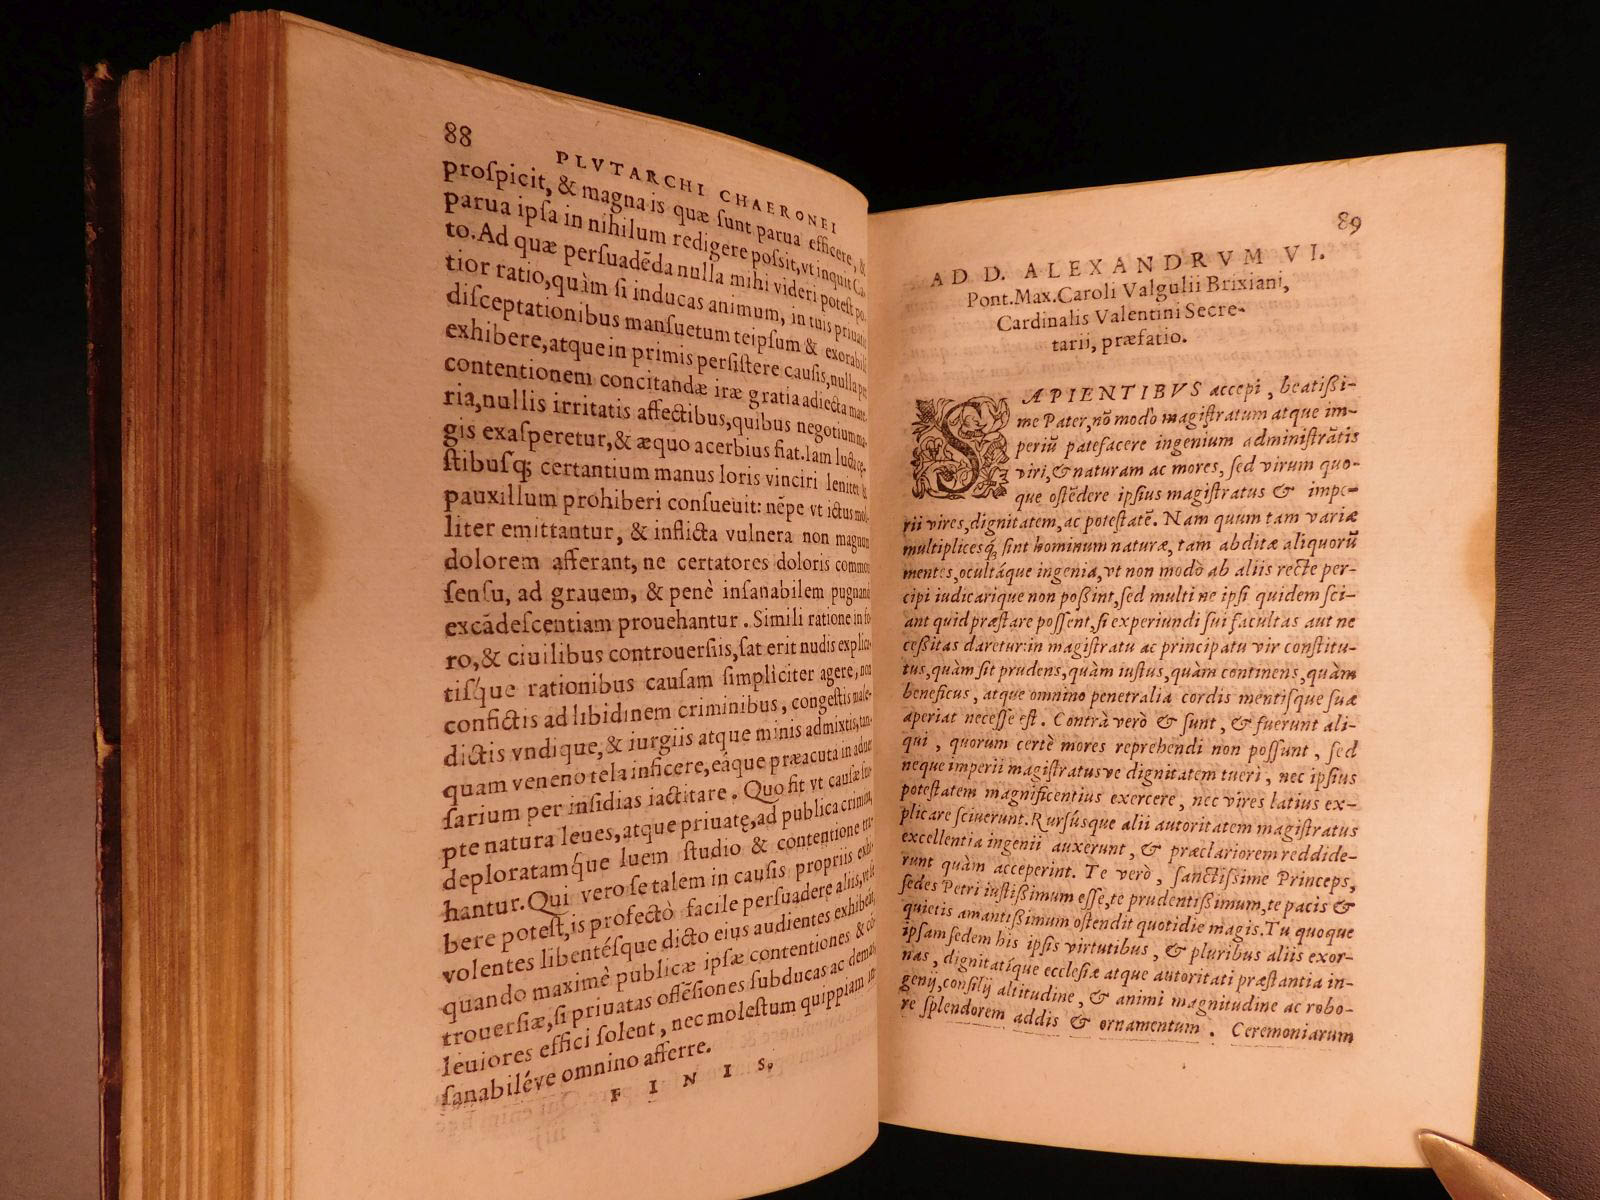 88
PLVTARCHI CHAERONEI
proſpicit, & magna is quæ ſunt parua efficere, &
parua ipſa in nihilum redigere poſsit, vt inquit Ca-
to. Ad quæ perſuadẽda nulla mihi videri poteſt po-
tior ratio, quàm ſi inducas animum, in tuis priuatis
diſceptationibus manſuetum teipſum & exorabilẽ
exhibere, atque in primis perſiſtere cauſis, nulla per
contentionem concitandæ iræ gratia adiecta mate-
ria, nullis irritatis affectibus, quibus negotium ma-
gis exaſperetur, & æquo acerbius fiat. Iam lucta ce-
ſtibuſq; certantium manus loris vinciri leniter &
pauxillum prohiberi conſueuit: nẽpe vt ictus mol-
liter emittantur, & inflicta vulnera non magnum
dolorem afferant, ne certatores doloris commoti
ſenſu, ad grauem, & penè inſanabilem pugnandi
excãdeſcentiam prouehantur. Simili ratione in fo-
ro, & ciuilibus controuerſiis, ſat erit nudis explica-
tiſque rationibus cauſam ſimpliciter agere, non
confictis ad libidinem criminibus, congeſtis male-
dictis vndique, & iurgiis atque minis admixtis, tan-
quam veneno tela inficere, eáque præacuta in aduer
ſarium per inſidias iactitare. Quo fit vt cauſæ ſua-
pte natura leues, atque priuatę, ad publica crimina,
deploratamq́ue luem ſtudio & contentione tra-
hantur. Qui vero ſe talem in cauſis propriis exhi-
bere poteſt, is profectò facile perſuadere aliis, vt ſe
volentes libentéſque dicto eius audientes exhibeãt,
quando maximè publicæ ipſæ contentiones & cõ-
trouerſiæ, ſi priuatas offẽſiones ſubducas ac demas,
leuiores effici ſolent, nec moleſtum quippiam in-
ſanabiléve omnino afferre.
FINIS.
89
AD D. ALEXANDRVM VI.
Pont. Max. Caroli Valgulii Brixiani,
Cardinalis Valentini Secre-
tarii, præfatio.
SAPIENTIBVS accepi, beatiſsi-
me Pater, nõ modo magiſtratum atque im-
periũ patefacere ingenium adminiſtrãtis
viri, & naturam ac mores, ſed virum quo-
que oſtẽdere ipſius magiſtratus & impe-
rii vires, dignitatem, ac poteſtatẽ. Nam quum tam variæ
multiplicesq́; ſint hominum naturæ, tam abditæ aliquorũ
mentes, ocultáque ingenia, vt non modò ab aliis recte per-
cipi iudicarique non poſsint, ſed multi ne ipſi quidem ſci-
ant quid præſtare poſſent, ſi experiundi ſui facultas aut ne
ceſsitas daretur: in magiſtratu ac principatu vir conſtitu-
tus, quàm ſit prudens, quàm iuſtus, quàm continens, quàm
beneficus, atque omnino penetralia cordis mentiſque ſuæ
aperiat neceſſe eſt. Contrà verò & ſunt, & fuerunt ali-
qui, quorum certè mores reprehendi non poſſunt, ſed
neque imperii magiſtratusve dignitatem tueri, nec ipſius
poteſtatem magnificentius exercere, nec vires latius ex-
plicare ſciuerunt. Rurſúsque alii autoritatem magiſtratus
excellentia ingenii auxerunt, & præclariorem reddide-
runt quàm acceperint. Te verò, ſanctiſsime Princeps,
ſedes Petri iuſtiſsimum eſſe, te prudentiſsimum, te pacis &
quietis amantiſsimum oſtendit quotidie magis. Tu quoque
ipſam ſedem his ipſis virtutibus, & pluribus aliis exor-
nas, dignitatíque eccleſiæ atque autoritati præſtantia in-
genij, conſilij altitudine, & animi magnitudine ac robo-
re ſplendorem addis & ornamentum. Ceremoniarum